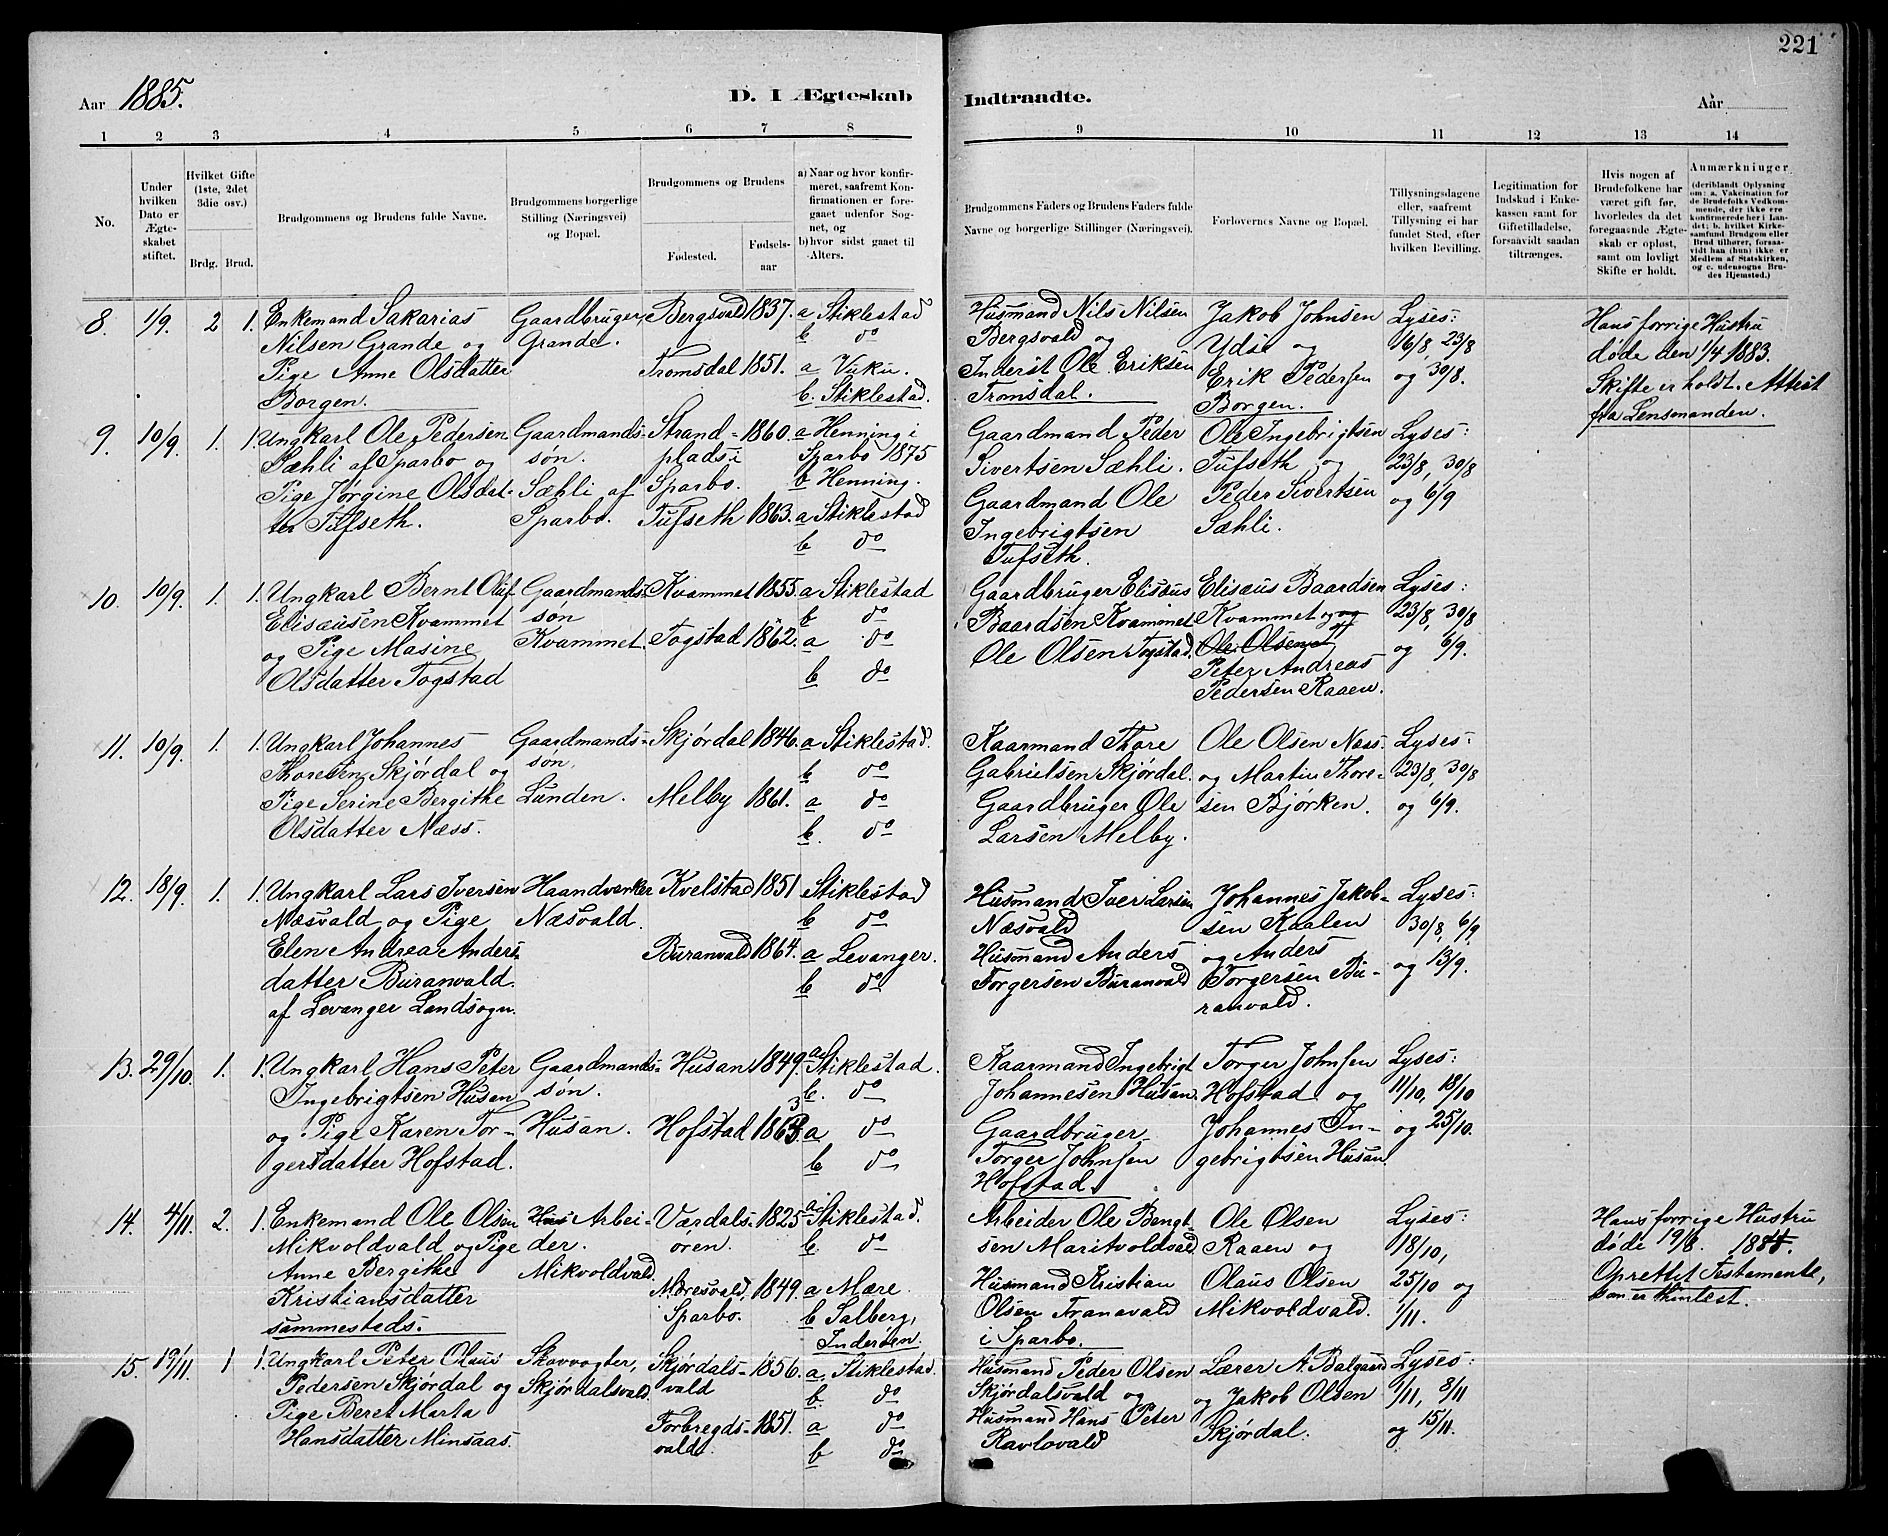 221
Aar 1885.
D. I Ægteskab Indtraadte.
Aar
1 2 3 4 5 6 7 8 9 10 11 12 13 14
No.
Under hvilken Dato er Ægteskabet stiftet.
Hvilket Gifte (1ste, 2det 3die osv.)
Brdg. Brud.
Brudgommens og Brudens fulde Navne.
Brudgommens borgerlige Stilling (Næringsvei) og Bopæl.
Brudgommens og Brudens
Fødested.
Fødsels-aar
a) Naar og hvor konfirmeret, saafremt Konfirmationen er foregaaet udenfor Sognet, og
b) hvor sidst gaaet til Alters.
Brudgommens Faders og Brudens Faders fulde Navne og borgerlige Stillinger (Næringsvei).
Forlovernes Navne og Bopæl.
Tillysningsdagene eller, saafremt Tillysning ei har fundet Sted, efter hvilken Bevilling.
Legitimation for Indskud i Enkekassen samt for Giftetilladelse, forsaavidt saadan tiltrænges.
Hvis nogen af Brudefolkene har været gift før, hvorledes da det foregaaende Ægteskab er opløst, samt om lovligt Skifte er holdt.
Anmærkninger
(deriblandt Oplysning om: a. Vakcination for de Brudefolks Vedkommende, der ikke ere konfirmerede her i Landet; b. hvilket Kirkesamfund Brudgom eller Brud tilhører, forsaavidt han (hun) ikke er Medlem af Statskirken, og c. udensogns Brudes Hjemsted.)
8. 1/9. 2 1.
Enkemand Sakarias
Nilsen Grande og
Pige Anne Olsdatter
Borgen.
Gaardbruger,
Grande.
Bergsvald 1837.
Tromsdal 1851.
a Stiklestad
b do
a Vuku.
b. Stiklestad.
Husmand Nils Nilsen
Bergsvald og
Inderst Ole Eriksen
Tromsdal.
Jakob Johnsen
Ydse og
Erik Pedersen
Borgen.
Lyses:
16/8 23/8
og 30/8.
Hans forrige Hustru
døde den 1/4 1883.
Skifte er holdt. Attest
fra Lensmanden.
9. 10/9. 1. 1.
Ungkarl Ole Pedersen
Sæhli af Sparbo og
Pige Jørgine Olsdat-
ter Tufseth.
Gaardmands-
søn.
Sæhli af
Sparbo.
Strand-
plads i
Sparbo.
1860.
Tufseth 1863.
a Henning i
Sparbo 1875
b Henning.
a Stiklestad
b do
Gaardmand Peder
Sivertsen Sæhli.
Gaardmand Ole
Ingebrigtsen
Tufseth.
Ole Ingebrigtsen
Tufseth og
Peder Sivertsen
Sæhli.
Lyses:
23/8, 30/8
og 6/9
10. 10/9. 1. 1.
Ungkarl Bernt Oluf
Elisæusen Kvammet
og Pige Masine
Olsdatter Togstad
Gaardmands-
søn
Kvammet.
Kvammet 1855.
Togstad 1862.
a Stiklestad
b do
a do
b do
Gaardbruger Elisæus
Baardsen Kvammet
Ole Olsen Togstad.
Elisæus Baardsen
Kvammet og
Ole Olsen
Peter Andreas
Pedersen Raaen.
Lyses:
23/8, 30/8
og 6/9.
11. 10/9. 1. 1.
Ungkarl Johannes
Thoresen Skjørdal og
Pige Serine Bergithe
Olsdatter Næss.
Gaardmands-
søn,
Lunden.
Skjørdal 1846.
Melby 1861.
a Stiklestad.
b do
a do
b. do
Kaarmand Thore
Gabrielsen Skjørdal.
Gaardbruger Ole
Larsen Melby.
Ole Olsen Næss
og Martin Thore-
sen Bjørken.
Lyses:
23/8, 30/8
og 6/9.
12. 18/9. 1. 1.
Ungkarl Lars Iversen
Næsvald og Pige
Elen Andrea Anders-
datter Buranvald
af Levanger Landsogn.
Haandværker
Næsvald.
Kvelstad 1851
Buranvald 1864.
Stiklestad
b do
a Levanger.
b do
Husmand Iver Larsen
Næsvald
Husmand Anders
Torgersen Buranvald
Johannes Jakob-
sen Kaalen
og Anders
Torgersen Bu-
ranvald.
Lyses:
30/8, 6/9
og 13/9.
13. 29/10. 1. 1.
Ungkarl Hans Peter
Ingebrigtsen Husan
og Pige Karen Tor-
gersdatter Hofstad.
Gaardmands-
søn.
Husan.
Husan 1849.
Hofstad 1863
a Stiklestad.
b. do
a do
b do
Kaarmand Ingebrigt
Johannesen Husan.
Gaardbruger
Torger Johnsen
Hofstad.
Torger Johnsen
Hofstad og
Johannes In-
gebrigtsen Husan.
Lyses:
11/10, 18/10
og 25/10.
14. 4/11. 2. 1.
Enkemand Ole Olsen
Mikvoldvald og Pige
Anne Bergithe
Kristiansdatter
sammesteds.
Hus Arbei-
der.
Mikvoldvald.
Værdals-
øren.
1825
Mæresvald,
Sparbo.
1849.
a Stiklestad.
b. do
a Mære.
b Salberg,
Inderøen.
Arbeider Ole Bengt-
sen Maritvoldvald
Husmand Kristian
Olsen Tranavald
i Sparbo.
Ole Olsen
Raaen og
Olaus Olsen
Mikvoldvald.
Lyses:
18/10,
25/10 og
1/11.
Hans forrige Hustru
døde 19/8.
Oprettet Testamente,
som er thinlest.
15. 19/11 1 1.
Ungkarl Peter Olaus
Pedersen Skjørdal og
Pige Beret Marta
Hansdatter Minsaas.
Skovvogter,
Skjørdalsvald.
Skjørdals-
vald
1856.
Forbregds-
vald.
1851.
a, Stiklestad.
b. do
a do
b do
Husmand Peder Olsen
Skjørdalsvald og
Husmand Hans Peter
Ravlovald
Lærer A. Balgaard
og Jakob Olsen
Skjørdal.
Lyses:
1/11, 8/11
og 15/11.